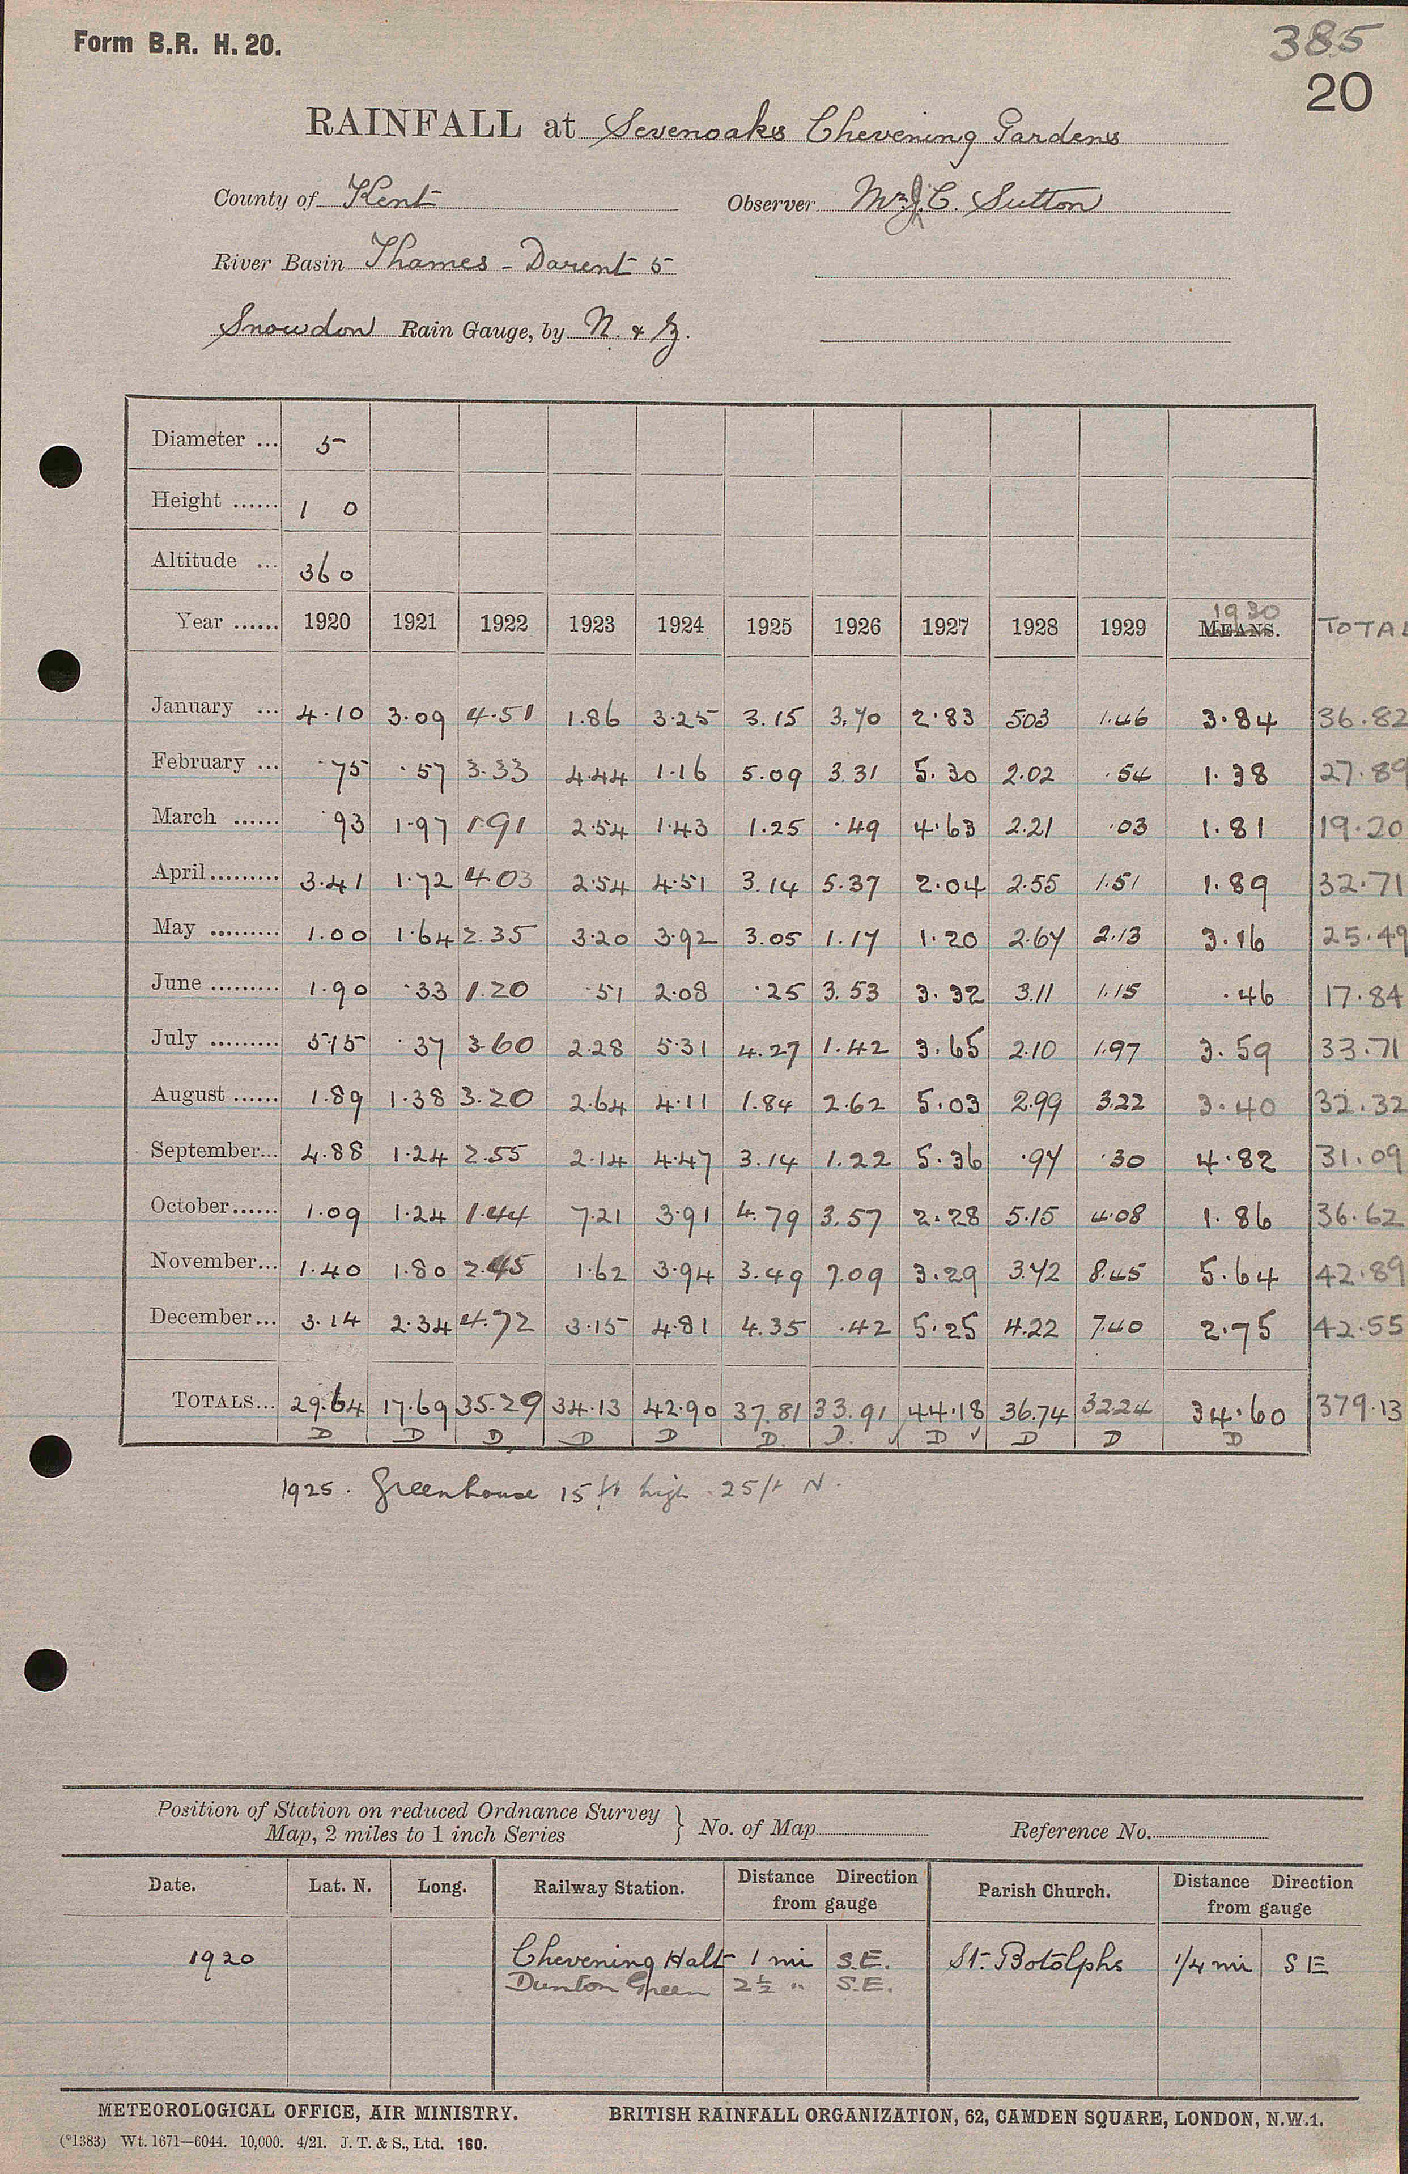 Form B.R. H. 20.
385
20
RAINFALL at Sevenoaks Chevening Gardens
County of Kent Observer Mr J. C. Sutton
River Basin Thames - Darent 5
Snowdon Rain Gauge, by N. & Z.
Diameter ... 5
Height ...... 1 0
Altitude ... 360
Year ...... 1920 1921 1922 1923 1924 1925 1926 1927 1928 1929 MEANS. 1930 TOTAL
January ... 4.10 3.09 4.51 1.86 3.25 3.15 3.70 2.83 503 1.46 3.84 36.82
February ... .75 .57 3.33 4.44 1.16 5.09 3.31 5.30 2.02 .54 1.38 27.89
March ...... .93 1.97 1.91 2.54 1.43 1.25 .49 4.63 2.21 .03 1.81 19.20
April ......... 3.41 1.72 4.03 2.54 4.51 3.14 5.37 2.04 2.55 1.51 1.89 32.71
May ......... 1.00 1.64 2.35 3.20 3.92 3.05 1.17 1.20 2.67 2.13 3.16 25.49
June ......... 1.90 .33 1.20 .51 2.08 .25 3.53 3.32 3.11 1.15 .46 17.84
July ......... 5.15 .37 3.60 2.28 5.31 4.27 1.42 3.65 2.10 1.97 3.59 33.71
August ...... 1.89 1.38 3.20 2.64 4.11 1.84 2.62 5.03 2.99 3.22 3.40 32.32
September... 4.88 1.24 2.55 2.14 4.47 3.14 1.22 5.36 .97 .30 4.82 31.09
October...... 1.09 1.24 1.44 7.21 3.91 4.79 3.57 2.28 5.15 4.08 1.86 36.62
November... 1.40 1.80 2.45 1.62 3.94 3.49 7.09 3.29 3.72 8.45 5.64 42.89
December... 3.14 2.34 4.72 3.15 4.81 4.35 .42 5.25 4.22 7.40 2.75 42.55
TOTALS... 29.64 17.69 35.29 34.13 42.90 37.81 33.91 44.18 36.74 32.24 34.60 379.13
D D D D D D D. ✓ D ✓ D D D
1925. Greenhouse 15 ft high 25 ft N.
Position of Station on reduced Ordnance Survey
Map, 2 miles to 1 inch Series } No. of Map Reference No.
Date. Lat. N. Long. Railway Station. Distance Direction from gauge Parish Church. Distance Direction from gauge
1920 Chevening Halt 1 mi S.E. St. Botolphs 1/4 mi S E
Dunton Green 2½ " S.E.
METEOROLOGICAL OFFICE, AIR MINISTRY. BRITISH RAINFALL ORGANIZATION, 62, CAMDEN SQUARE, LONDON, N.W.1.
(*1383) Wt. 1671—6044. 10,000. 4/21. J. T. & S., Ltd. 160.